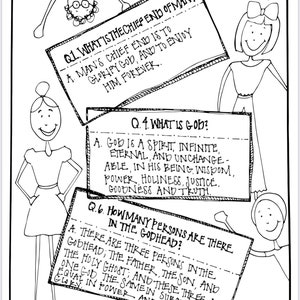 Q.1 WHAT IS THE CHIEF END OF MAN?
A. MAN'S CHIEF END IS TO
GLORIFY GOD, AND TO ENJOY
HIM FOREVER.
Q.4 WHAT IS GOD?
A. GOD IS A SPIRIT INFINITE,
ETERNAL, AND UNCHANGE-
ABLE, IN HIS BEING, WISDOM,
POWER, HOLINESS, JUSTICE,
GOODNESS AND TRUTH.
Q.6 HOW MANY PERSONS ARE THERE
IN THE GODHEAD?
A. THERE ARE THREE PERSONS IN THE
GODHEAD, THE FATHER, THE SON, AND
THE HOLY GHOST; AND THESE THREE ARE
ONE GOD, THE SAME IN SUBSTANCE,
EQUAL IN POWER AND
GLORY